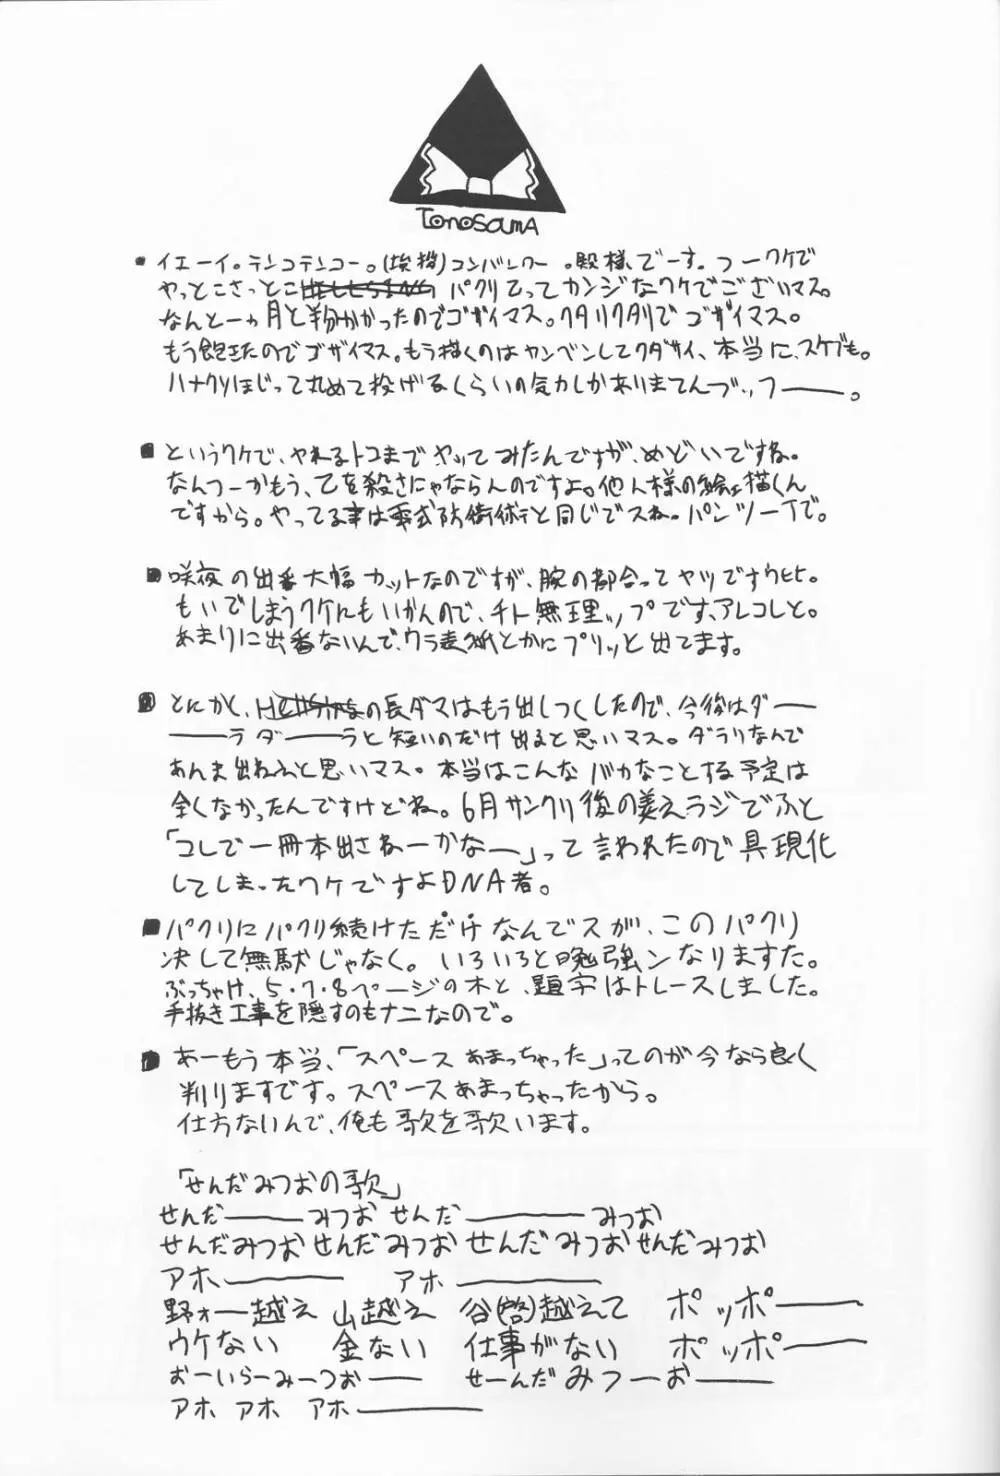 TonosamA
・イエーイ。テンコテンコー。(挨拶)コンバンワー。殿様でーす。つーワケで
やっとこさっとこHELLSINGパクリてってカンジなワケでございマス。
なんと一ヵ月と半分かかったのでゴザイマス。クタリクタリでゴザイマス。
もう飽きたのでゴザイマス。もう描くのはカンベンしてクダサイ、本当に、スケブも。
ハナクソほじって丸めて投げるくらいの気力しかありませんブッフーー。
■というワケで、やれるトコまでやってみたんですが、めどいですね。
なんつーかもう、己を殺さにゃならんのですよ。他人様の絵描くん
ですから。やってる事は零式防衛術と同じでスねーパンツ一丁で。
■咲夜の出番大幅カットなのですが、腕の都合ってヤツですウヒヒ。
もいでしまうワケにもいかんので、チト無理ップです、アレコレと。
あまりに出番ないんで、ウラ表紙とかにプリッと出てます。
■とにかく、の長ダマはもう出しつくしたので、今後はダー
ーーラダーーラと短いのだけ出ると思いマス。ダラリなんで
あんま出ねぇと思いマス。本当はこんなバカなことする予定は
全くなかったんですけどね。6月サンクリ後の美えラジでふと
「コレで一冊本出さねーかなー」って言われたので具現化
してしまったワケですよDNA者。
■パクリにパクリ続けただけなんでスが、このパクリ
決して無駄じゃなく。いろいろと勉強ンなりますた。
ぶっちゃけ、5・7・8ページの木と、題字はトレースしました。
手抜き工事を隠すのもナニなので。
■あーもう本当、「スペースあまっちゃった」ってのが今なら良く
判りますです。スペースあまっちゃったから。
仕方ないんで、俺も歌を歌います。
「せんだみつおの歌」
せんだーーみつお せんだーーーみつお
せんだみつお せんだみつお せんだみつお せんだみつお
アホーーー アホーーー
野ォー越え 山越え 谷(啓)越えて ポッポーー
ウケない 金ない 仕事がない ポッポーー
おーいらーみーつおーー せーんだみつーおーー
アホ アホ アホーーー